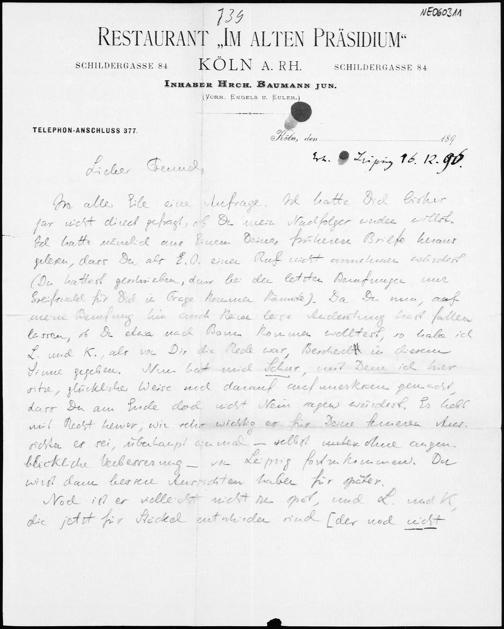 739
NE060311
RESTAURANT „IM ALTEN PRÄSIDIUM“
SCHILDERGASSE 84 KÖLN A. RH. SCHILDERGASSE 84
INHABER HRCH. BAUMANN JUN.
(VORM. ENGELS U. EULER.)
TELEPHON-ANSCHLUSS 377.
Köln, den 189
Leipzig 16.12.96.
Lieber Freund,
In aller Eile eine Anfrage. Ich hatte Dich bisher
gar nicht direct gefragt, ob Du mein Nachfolger werden willst.
Ich hatte nämlich aus einem Deiner früheren Briefe heraus
gelesen, dass Du als E.O. einen Ruf nicht annehmen würdest
(Du hattest geschrieben, dass bei den letzten Berufungen nur
Greifswald für Dich in Frage kommen könnte). Da Du nun, auf
meine Berufung hin auch keine leise Andeutung hast fallen
lassen, ob Du etwa nach Bonn kommen wolltest, so habe ich
L. und K., als von Dir die Rede war, Bescheid in diesem
Sinne gegeben. Nun hat mich Schur, mit dem ich hier
sitze, glücklicher Weise mich darauf aufmerksam gemacht,
dass Du am Ende doch nicht Nein sagen würdest. Es hebt
mit Recht hervor, wie sehr wichtig es für Deine ferneren Aus-
sichten es sei, überhaupt einmal – selbst ohne augen-
blickliche Verbesserung – von Leipzig fortzukommen. Du
wirst dann bessere Aussichten haben für später.
Noch ist es vielleicht nicht zu spät, und L. und K.,
die jetzt für Stäckel entschieden sind [der noch nicht